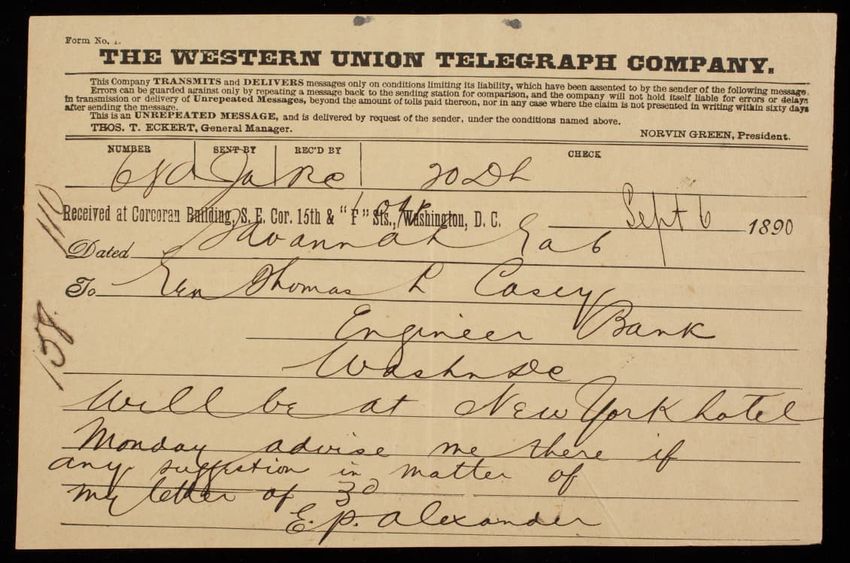 Form No. 1.
THE WESTERN UNION TELEGRAPH COMPANY.
This Company TRANSMITS and DELIVERS messages only on conditions limiting its liability, which have been assented to by the sender of the following message.
Errors can be guarded against only by repeating a message back to the sending station for comparison, and the company will not hold itself liable for errors or delays
in transmission or delivery of Unrepeated Messages, beyond the amount of tolls paid thereon, nor in any case where the claim is not presented in writing within sixty days
after sending the message.
This is an UNREPEATED MESSAGE, and is delivered by request of the sender, under the conditions named above.
THOS. T. ECKERT, General Manager. NORVIN GREEN, President.
NUMBER SENT BY REC'D BY CHECK
Ja 20 Dh
Received at Corcoran Building, S. E. Cor. 15th & "F" Sts., Washington, D. C. Sept 6 1890
110
Dated Savannah Ga 6
To Gen Thomas L Casey
138
Engineer Bank
Washn DC
Will be at New York hotel
Monday advise me there if
any suggestion in matter of
my letter of 3d
E. P. Alexander